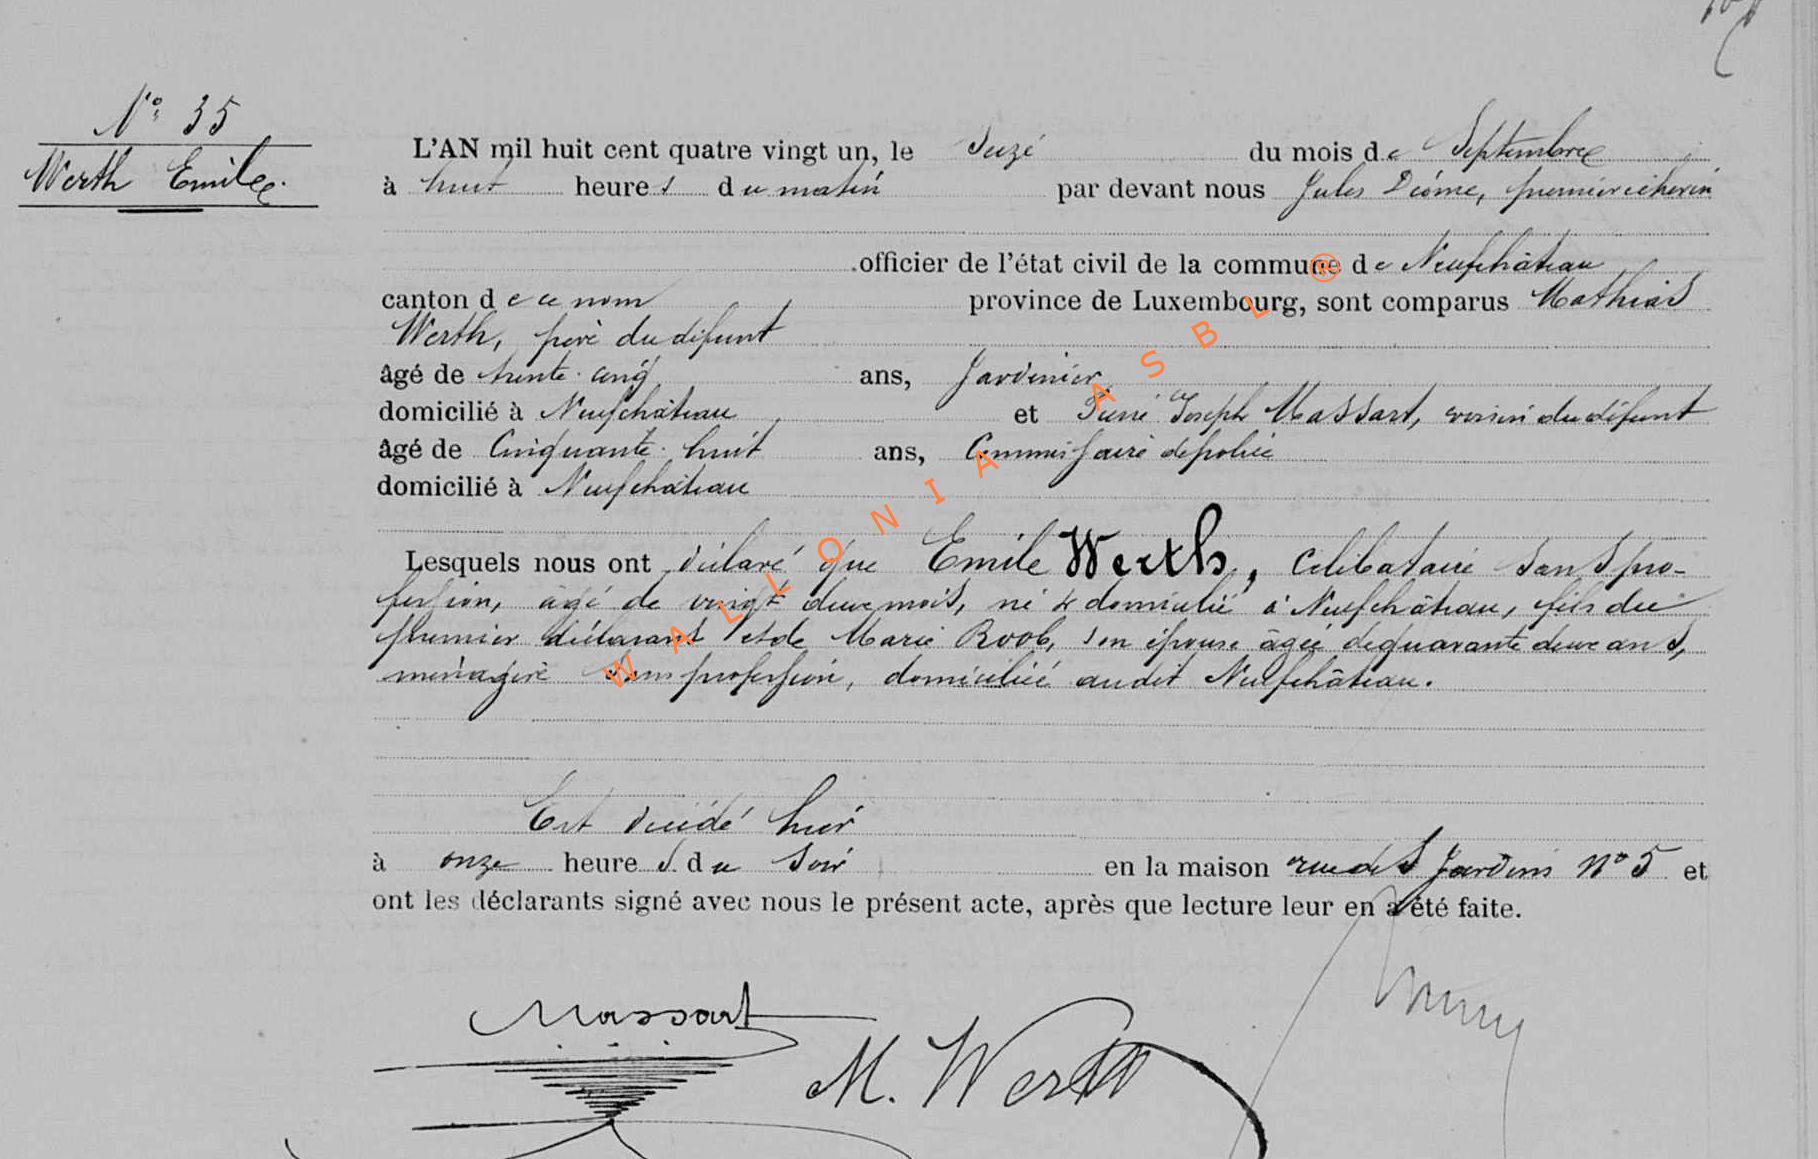 N° 35
Werth Emile.
L'AN mil huit cent quatre vingt un, le Seize du mois de Septembre
à huit heures du matin par devant nous Jules Diôme, premier échevin
officier de l'état civil de la commune de Neufchâteau
canton de ce nom province de Luxembourg, sont comparus Mathias
Werth, père du défunt
âgé de trente cinq ans, Jardinier
domicilié à Neufchâteau et Pierre Joseph Massart, voisin du défunt
âgé de Cinquante huit ans, Commissaire de police
domicilié à Neufchâteau
Lesquels nous ont déclaré que Emile Werth, célibataire sans pro-
fession, âgé de vingt deux mois, né & domicilié à Neufchâteau, fils du
premier déclarant et de Marie Roob, son épouse âgée de quarante deux ans,
ménagère sans profession, domiciliée audit Neufchâteau.
Est décédé hier
à onze heures du soir en la maison rue des Jardins N° 5 et
ont les déclarants signé avec nous le présent acte, après que lecture leur en a été faite.
Massart
M. Werth
WALLONIA ASBL ®